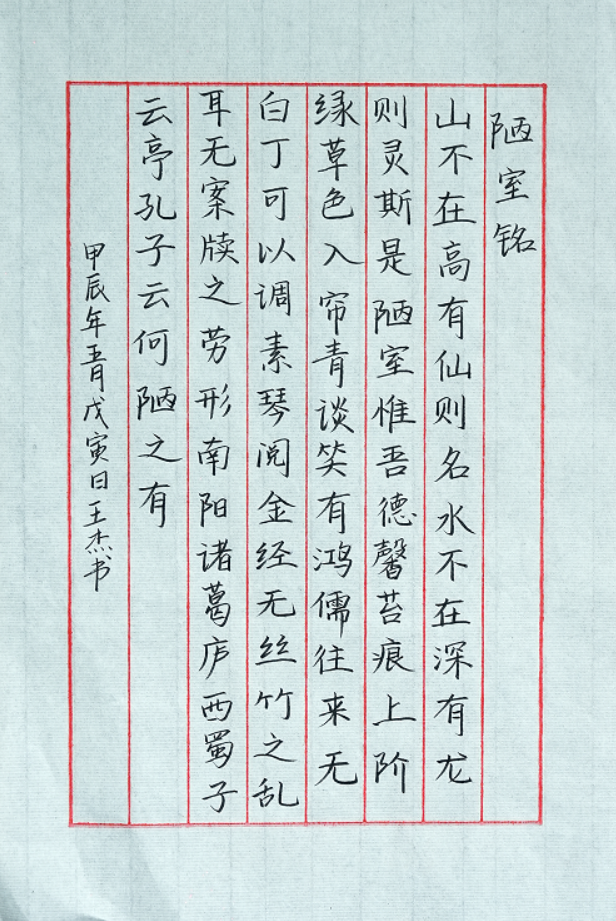 陋室铭
山不在高有仙则名水不在深有龙
则灵斯是陋室惟吾德馨苔痕上阶
绿草色入帘青谈笑有鸿儒往来无
白丁可以调素琴阅金经无丝竹之乱
耳无案牍之劳形南阳诸葛庐西蜀子
云亭孔子云何陋之有
甲辰年五月戊寅日王杰书